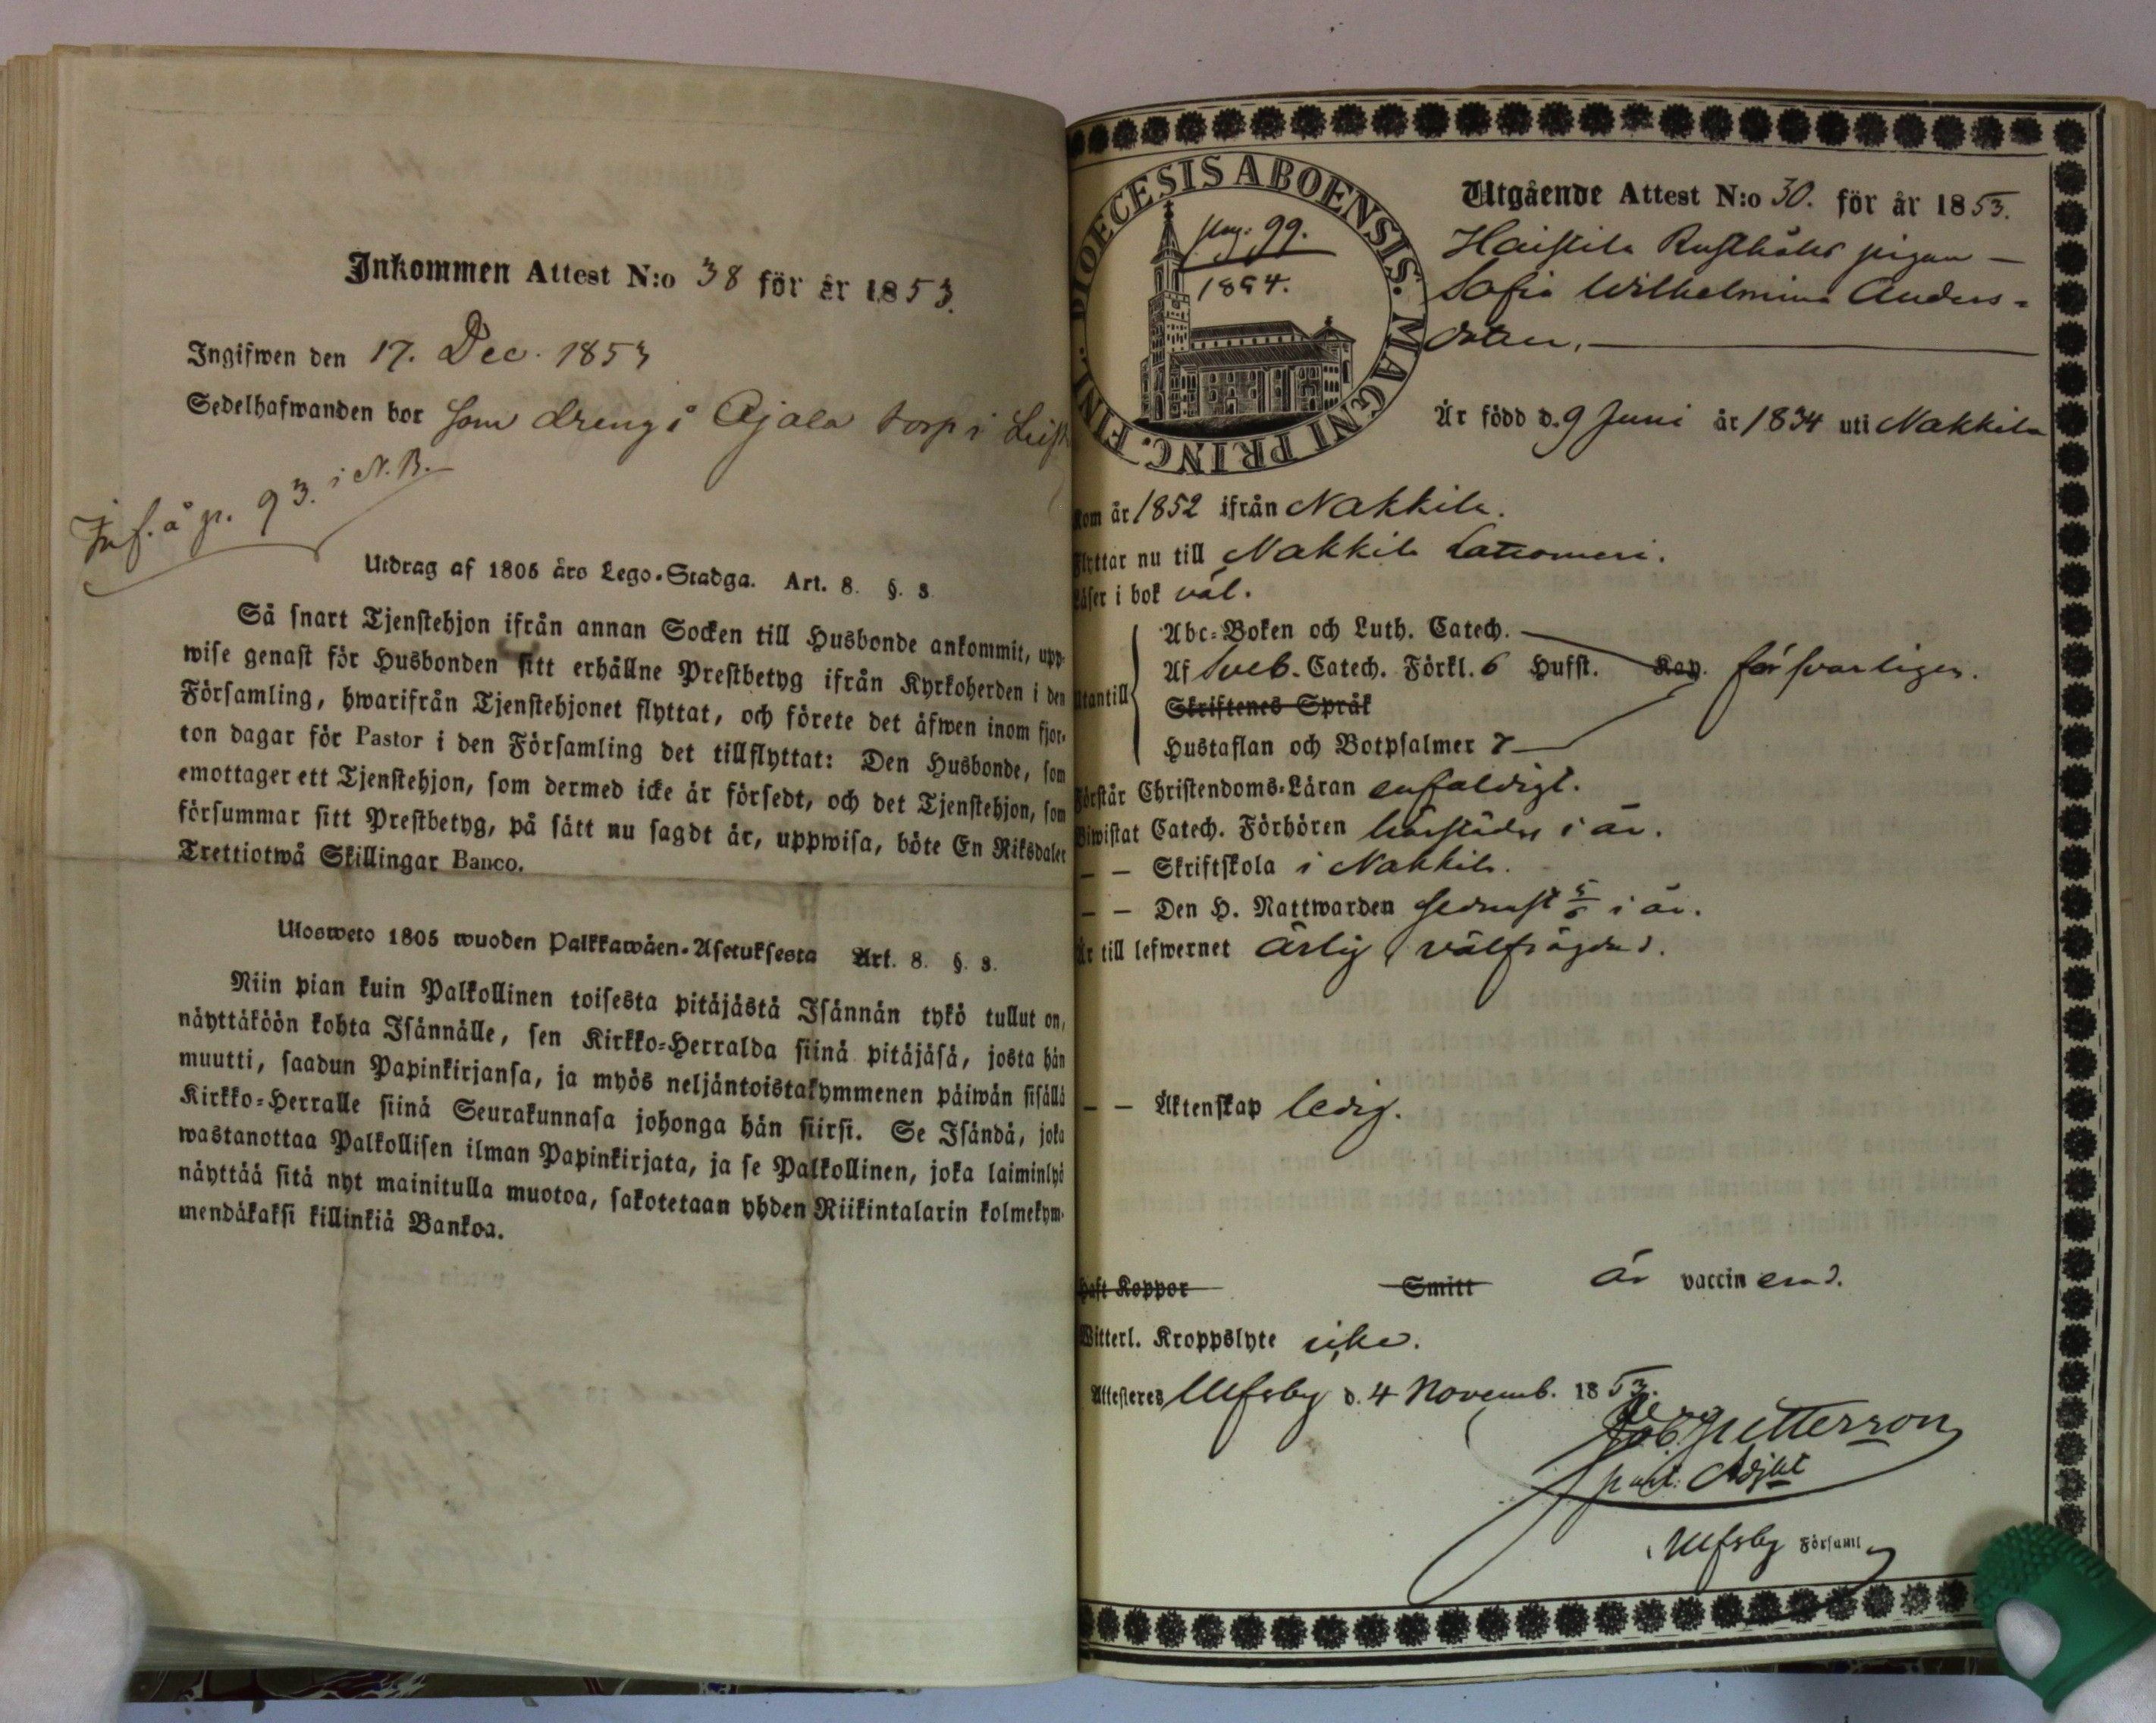 Inkommen Attest N:o 38 för år 1853.
Ingifwen den 17. Dec. 1853
Sedelhafwanden bor som dreng i Ajala torp i
Inf. å p. 93. i N. B.
Utdrag af 1805 års Lego-Stadga. Art. 8. §. 3.
Så snart Tjenstehjon ifrån annan Socken till Husbonde ankommit, upp-
wise genast för Husbonden sitt erhållne Prestbetyg ifrån Kyrkoherden i den
Församling, hwarifrån Tjenstehjonet flyttat, och förete det äfwen inom fjor-
ton dagar för Pastor i den Församling det tillflyttat: Den Husbonde, som
emottager ett Tjenstehjon, som dermed icke är försedt, och det Tjenstehjon, som
försummar sitt Prestbetyg, på sätt nu sagdt är, uppwisa, böte En Riksdaler
Trettiotwå Skillingar Banco.
Ulosweto 1805 wuoden Palkkawäen-Asetuksesta Art. 8. §. 3.
Niin pian kuin Palkollinen toisesta pitäjästä Isännän tykö tullut on,
näyttäköön kohta Isännälle, sen Kirkko-Herralda siinä pitäjäsä, josta hän
muutti, saadun Papinkirjansa, ja myös neljäntoistakymmenen päiwän sisällä
Kirkko-Herralle siinä Seurakunnasa johonga hän siirsi. Se Isändä, joka
wastanottaa Palkollisen ilman Papinkirjata, ja se Palkollinen, joka laiminlyö
näyttää sitä nyt mainitulla muotoa, sakotetaan yhden Riikintalarin kolmekym-
mendäkaksi killinkiä Bankoa.
DIOECESIS ABOENSIS. MAGNI PRINC. FINL.
pag: 99.
1854.
Utgående Attest N:o 30. för år 1853.
Haistila Rusthålls pigan —
Sofia Wilhelmina Anders-
dotter,
Är född d. 9 Juni år 1834 uti Nakkila
Kom år 1852 ifrån Nakkila.
Flyttar nu till Nakkila Lattomeri.
Läser i bok väl.
Utantill
Abc-Boken och Luth. Catech.
Af Sveb. Catech. Förkl. 6 Hufst. Kap. försvarligen.
Skriftenes Språk
Hustaflan och Botpsalmer 7
Förstår Christendoms-Läran enfaldigt.
Biwistat Catech. Förhören härstädes i år.
— — Skriftskola i Nakkila.
— — Den H. Nattwarden sednast 5/6 i år.
Är till lefwernet ärlig, välfrägdad.
— — Äktenskap ledig.
Haft Koppor Smitt är vaccinerad.
Witterl. Kroppslyte icke.
Attesteres Ulfsby d. 4 Novemb. 1853.
Petterson
past. Adjkt
i Ulfsby Församl